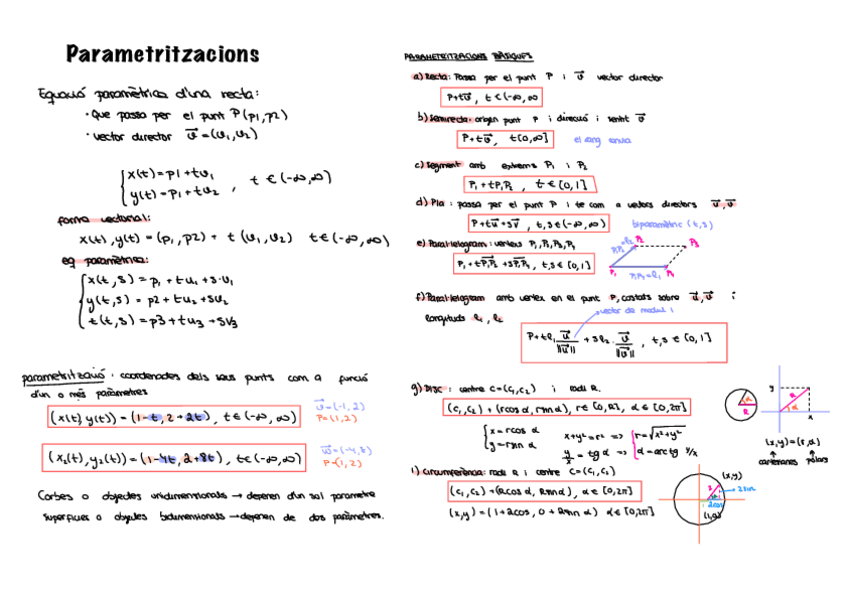 Parametritzacions
Equació paramètrica d'una recta:
· Que passa per el punt P(p1,p2)
· vector director v⃗=(v₁,v₂)
x(t)=p1+tv₁
y(t)=p1+tv₂ , t∈(-∞,∞)
forma vectorial:
x(t),y(t)=(p₁,p2)+t(v₁,v₂) t∈(-∞,∞)
eq paramètrica:
x(t,s)=p₁+tu₁+s·v₁
y(t,s)=p2+tu₂+sv₂
t(t,s)=p3+tu₃+sv3
parametrització: coordenades dels seus punts com a funció
d'un o més paràmetres
(x(t),y(t))=(1-t,2+2t), t∈(-∞,∞)
v⃗=(-1,2)
P=(1,2)
(x₂(t),y₂(t))=(1-4t,2+8t), t∈(-∞,∞)
w⃗=(-4,8)
P=(1,2)
Corbes o objectes unidimensionals → depenen d'un sol parametre
Superfícies o objectes bidimensionals → depenen de dos paràmetres.
PARAMETRITZACIONS BÀSIQUES
a) Recta: Passa per el punt P i v⃗ vector director
P+tv⃗, t∈(-∞,∞
b) Semirecta: origen punt P i direcció i sentit v⃗
P+tv⃗, t[0,∞]
el rang canvia
c) Segment amb extrems P₁ i P₂
P₁+tP₁P₂, t∈[0,1]
d) Pla: passa per el punt P i te com a vectors directors u⃗,v⃗
P+tu⃗+sv⃗, t,s∈(-∞,∞)
biparamètric (t,s)
e) Paral·lelogram: vertexs P₁,P₂,P₃,P₄
P₁+tP₁P₂+sP₁P₄, t,s∈[0,1]
P₁P₂=l₂
P₂
P₃
P₁
P₁P₄=l₁
P₄
f) Paral·lelogram amb vertex en el punt P, costats sobre u⃗,v⃗ i
longituds l₁, l₂
vector de modul 1
P+tl₁ u⃗/||u⃗|| + sl₂· v⃗/||v⃗||, t,s∈[0,1]
g) Disc: centre C=(c₁,c₂) i radi R.
(c₁,c₂)+(rcosα,rsinα), r∈[0,R], α∈[0,2π]
x=rcosα
y=rsinα
x+y²=r² => r=√x²+y²
y/x=tgα => α=arctg y/x
α
R
y
R
α
x
(x,y)=(r,α)
cartesianes polars
i) Circumferència: radi R i centre C=(c₁,c₂)
(c₁,c₂)+(Rcosα,Rsinα), α∈[0,2π]
(x,y)=(1+2cosα,0+2sinα) α∈[0,2π]
(x,y)
2
2sin
2cos
(1,0)